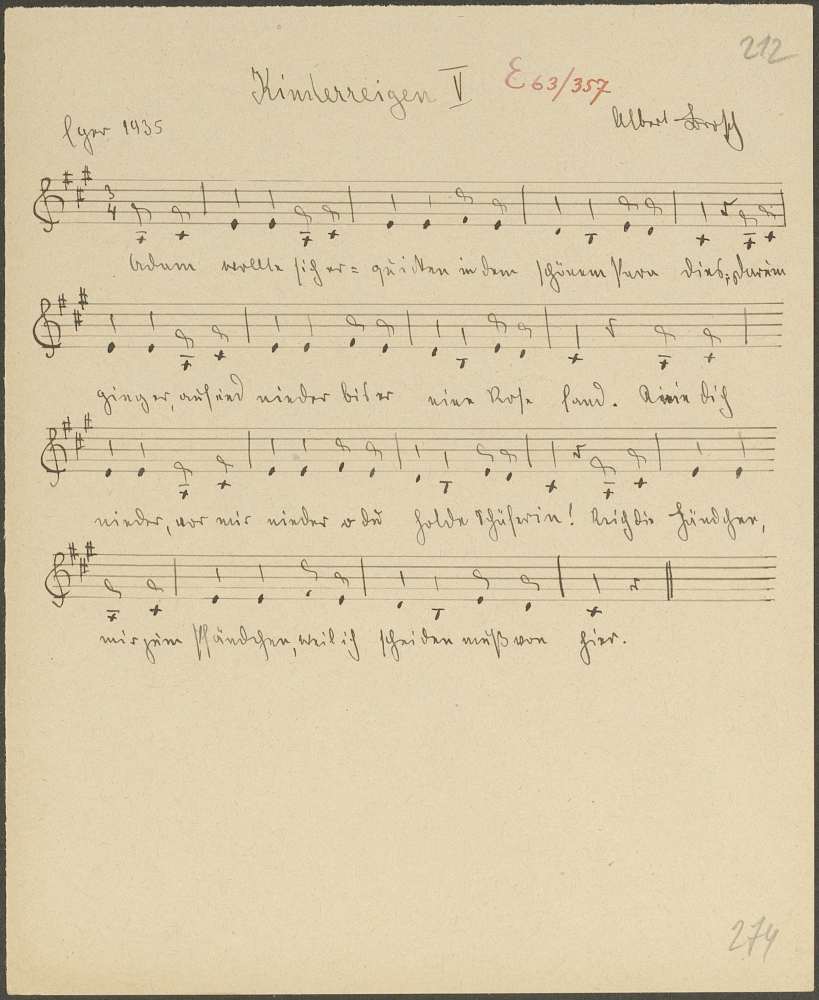 212
Kinderreigen V E 63/357
Eger 1935 Albert Brosch
3
4
Adam wollte sich er= quicken in dem schönem Para dies; Darum
ging er, auf und nieder bis er eine Rose fand. Knie dich
nieder, vor mir nieder o du holde Schäferin! Reich die Händchen,
mir zum Pfändchen, weil ich scheiden muß von hier.
274